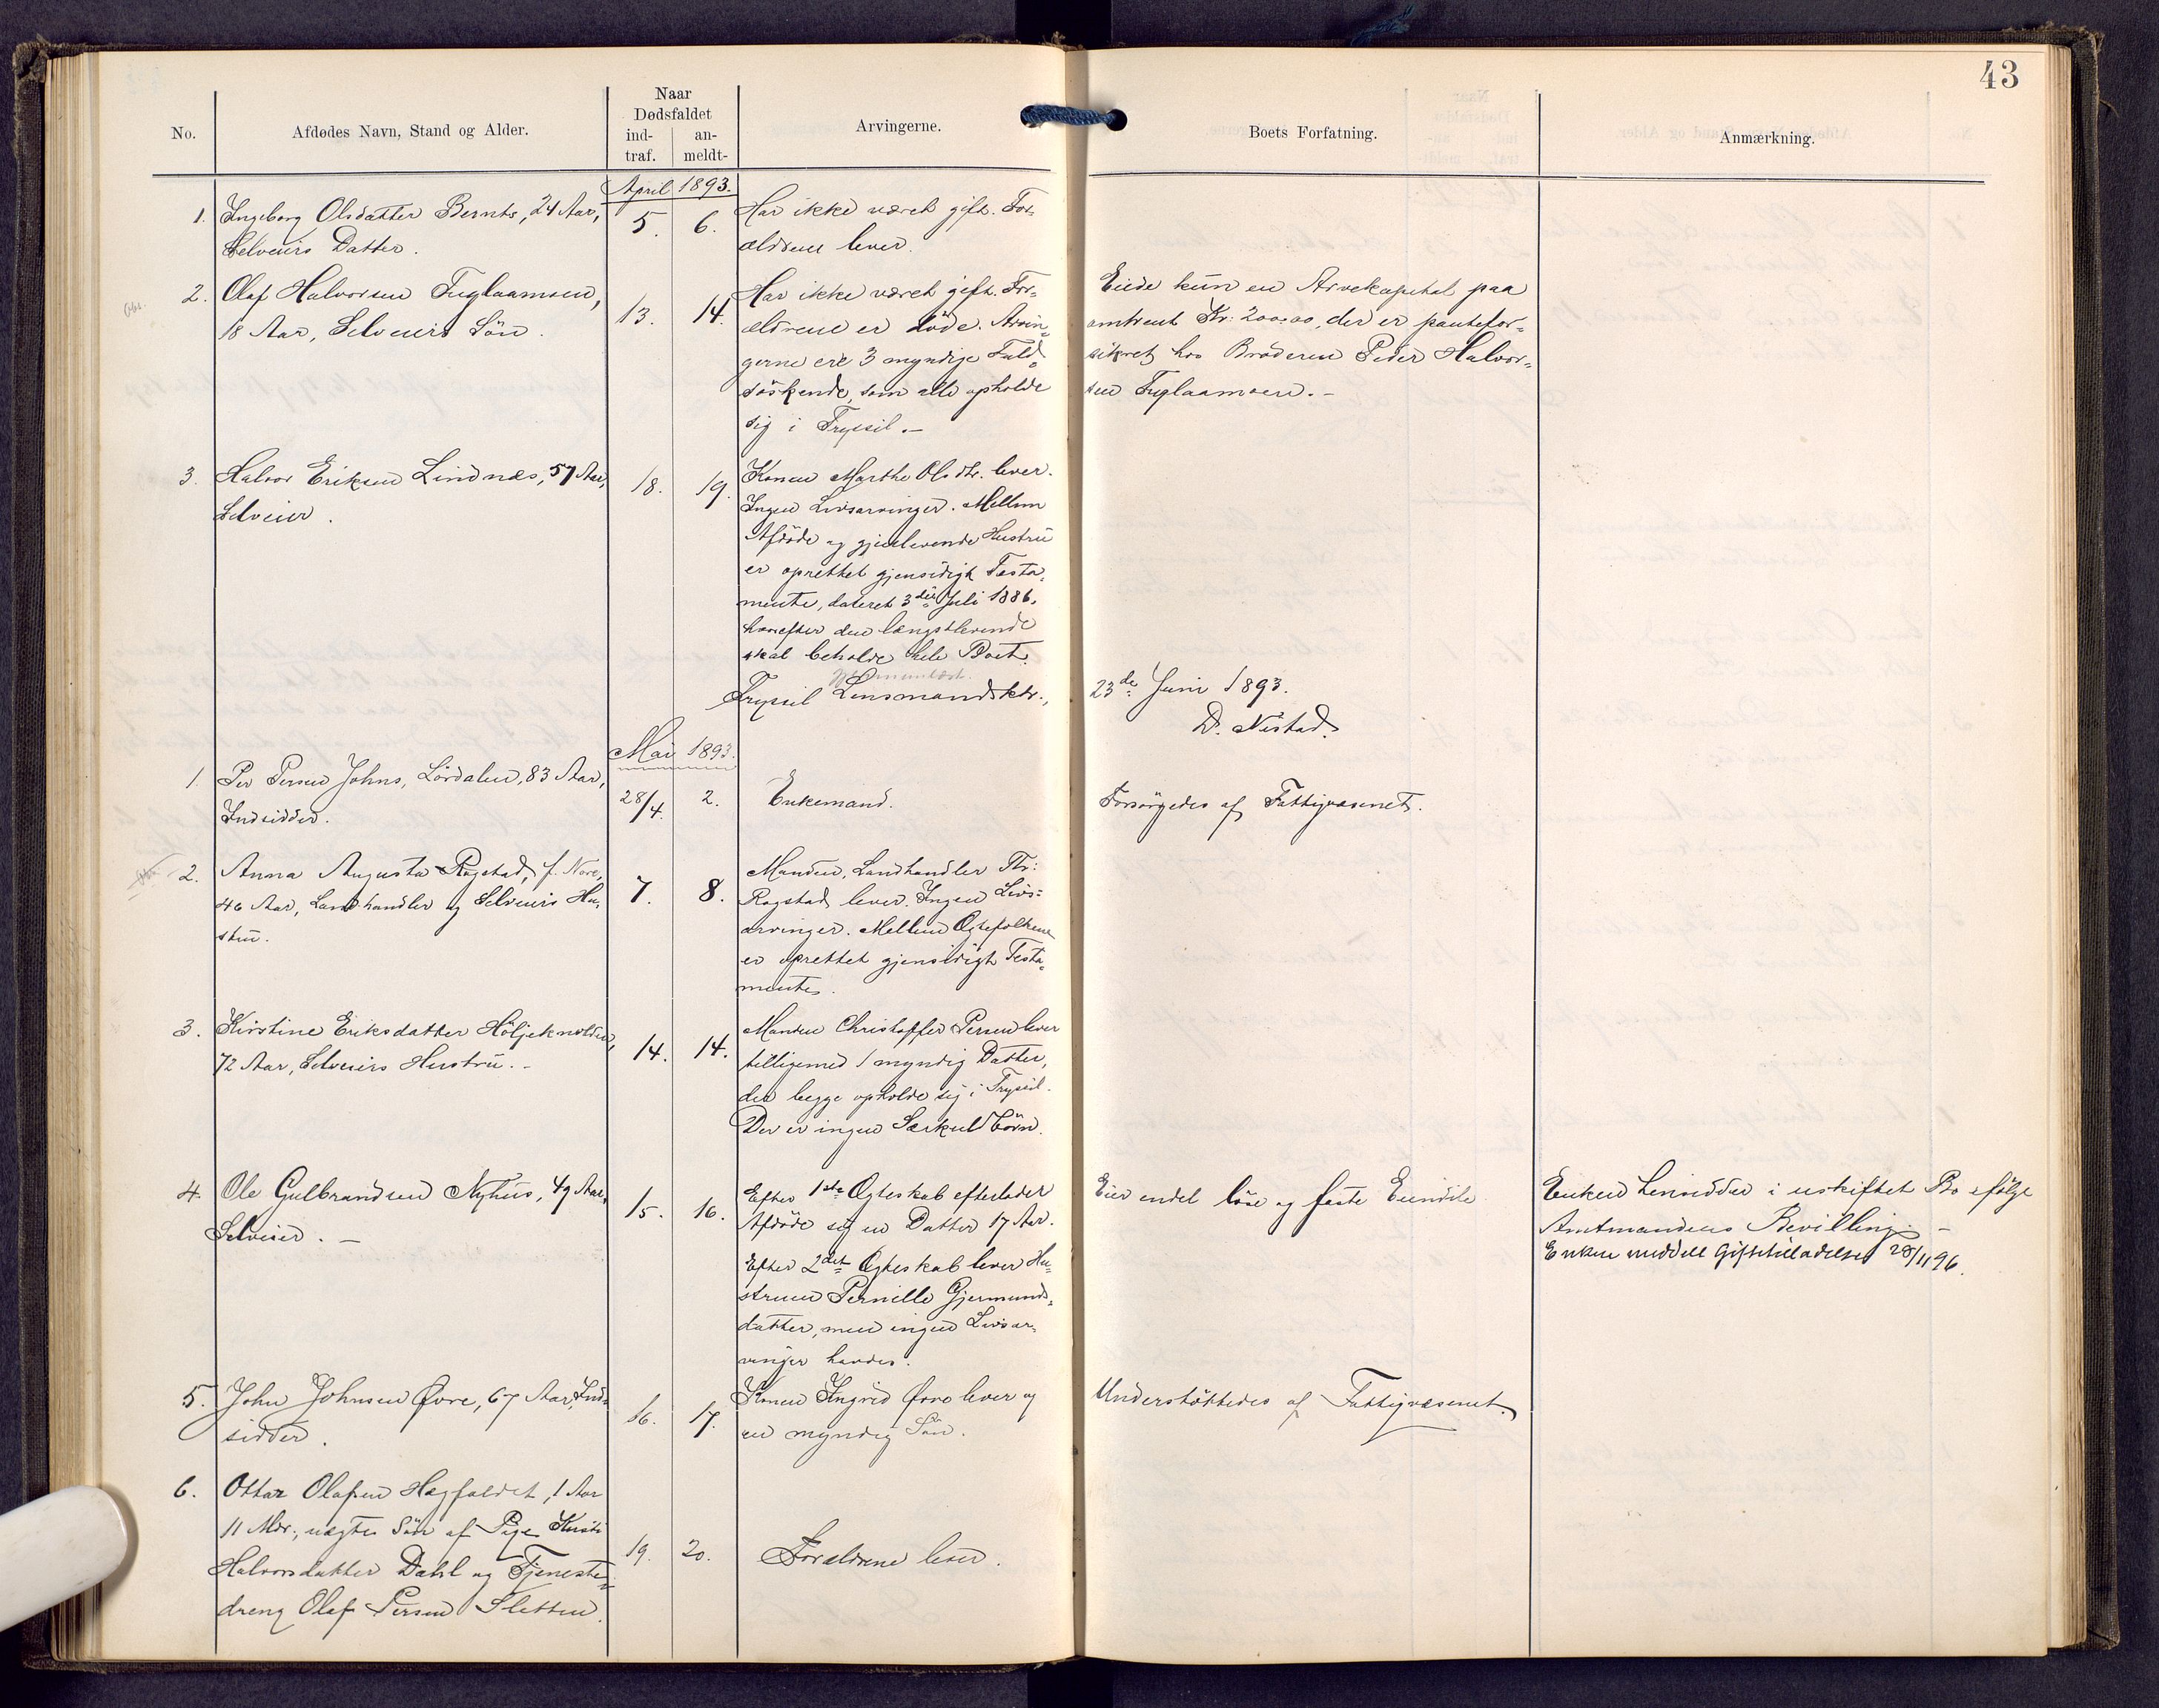 43
No.
Afdødes Navn, Stand og Alder.
Naar
Dødsfaldet
ind-
traf.
an-
meldt-
Arvingerne.
Boets Forfatning.
Anmærkning.
April 1893.
1. Ingeborg Olsdatter Bernts, 24 Aar,
Selveiers Datter.
5. 6.
Har ikke været gift. For-
ældrene lever.
2. Olaf Halvorsen Fuglaamoen,
18 Aar, Selveiers Søn.
13. 14.
Har ikke været gift. For-
ældrene er døde. Arvin-
gerne ere 3 myndige Fuld-
søskende, som alle opholde
sig i Trysil.-
Eiede kun en Arvekapital paa
omtrent Kr. 200.00, der er pantefor-
sikret hos Broderen Peder Halvor-
sen Fuglaamoen.-
3. Halvor Eriksen Lindnæs, 57 Aar,
Selveier.
18. 19.
Konen Marthe Olsdtr. lever.
Ingen Livsarvinger. Mellem
Afdøde og gjenlevende Hustru
er oprettet gjensidigt Testa-
mente, dateret 3die Juli 1886,
hvorefter den længstlevende
skal beholde hele Boet.
Trysil Lensmandsktr.,
23de Juni 1893.
D. Nistad
Mai 1893.
1. Per Persen Johns, Lördalen, 83 Aar,
Indsidder.
28/4. 2.
Enkemand.
Forsørgedes af Fattigvæsenet.
2. Anna Augusta Rogstad, f. Nore,
46 Aar, Landhandler og Selveiers Hu-
stru.
7. 8.
Manden, Landhandler Thr:
Rogstad lever. Ingen Livs-
arvinger. Mellem Ægtefolkene
er oprettet gjensidigt Testa-
mente.
3. Kirstine Eriksdatter Höljeknolden,
72 Aar, Selveiers Hustru.-
14. 14.
Manden Christoffer Persen lever
tilligemed 1 myndig Datter,
der begge opholde sig i Trysil.
Der er ingen Særkuldbörn.
4. Ole Gulbrandsen Nyhus, 49 Aar,
Selveier.-
15. 16.
Efter 1ste Ægteskab efterlader
Afdøde sig en Datter 17 Aar.
Efter 2det Ægteskab lever Hu-
struen Pernille Gjermunds-
datter, men ingen Livsar-
vinger havdes.
Eier endel løse og faste Eiendele
Enken hensidder i uskiftet Bo ifølge
Amtmandens Bevilling.-
Enken meddelt Giftetilladelse 28/11 96.
5. John Johnsen Øvre, 67 Aar, Ind-
sidder.
16. 17.
Konen Ingrid Øvre lever og
en myndig Søn.
Understøttedes af Fattigvæsenet.
6. Ottar Olafsen Hagfaldet, 1 Aar
11 Mdr., uægte Søn af Pige Kirsti
Halvorsdatter Dahl og Tjeneste-
dreng Olaf Persen Sletten.
19. 20.
Forældrene lever.